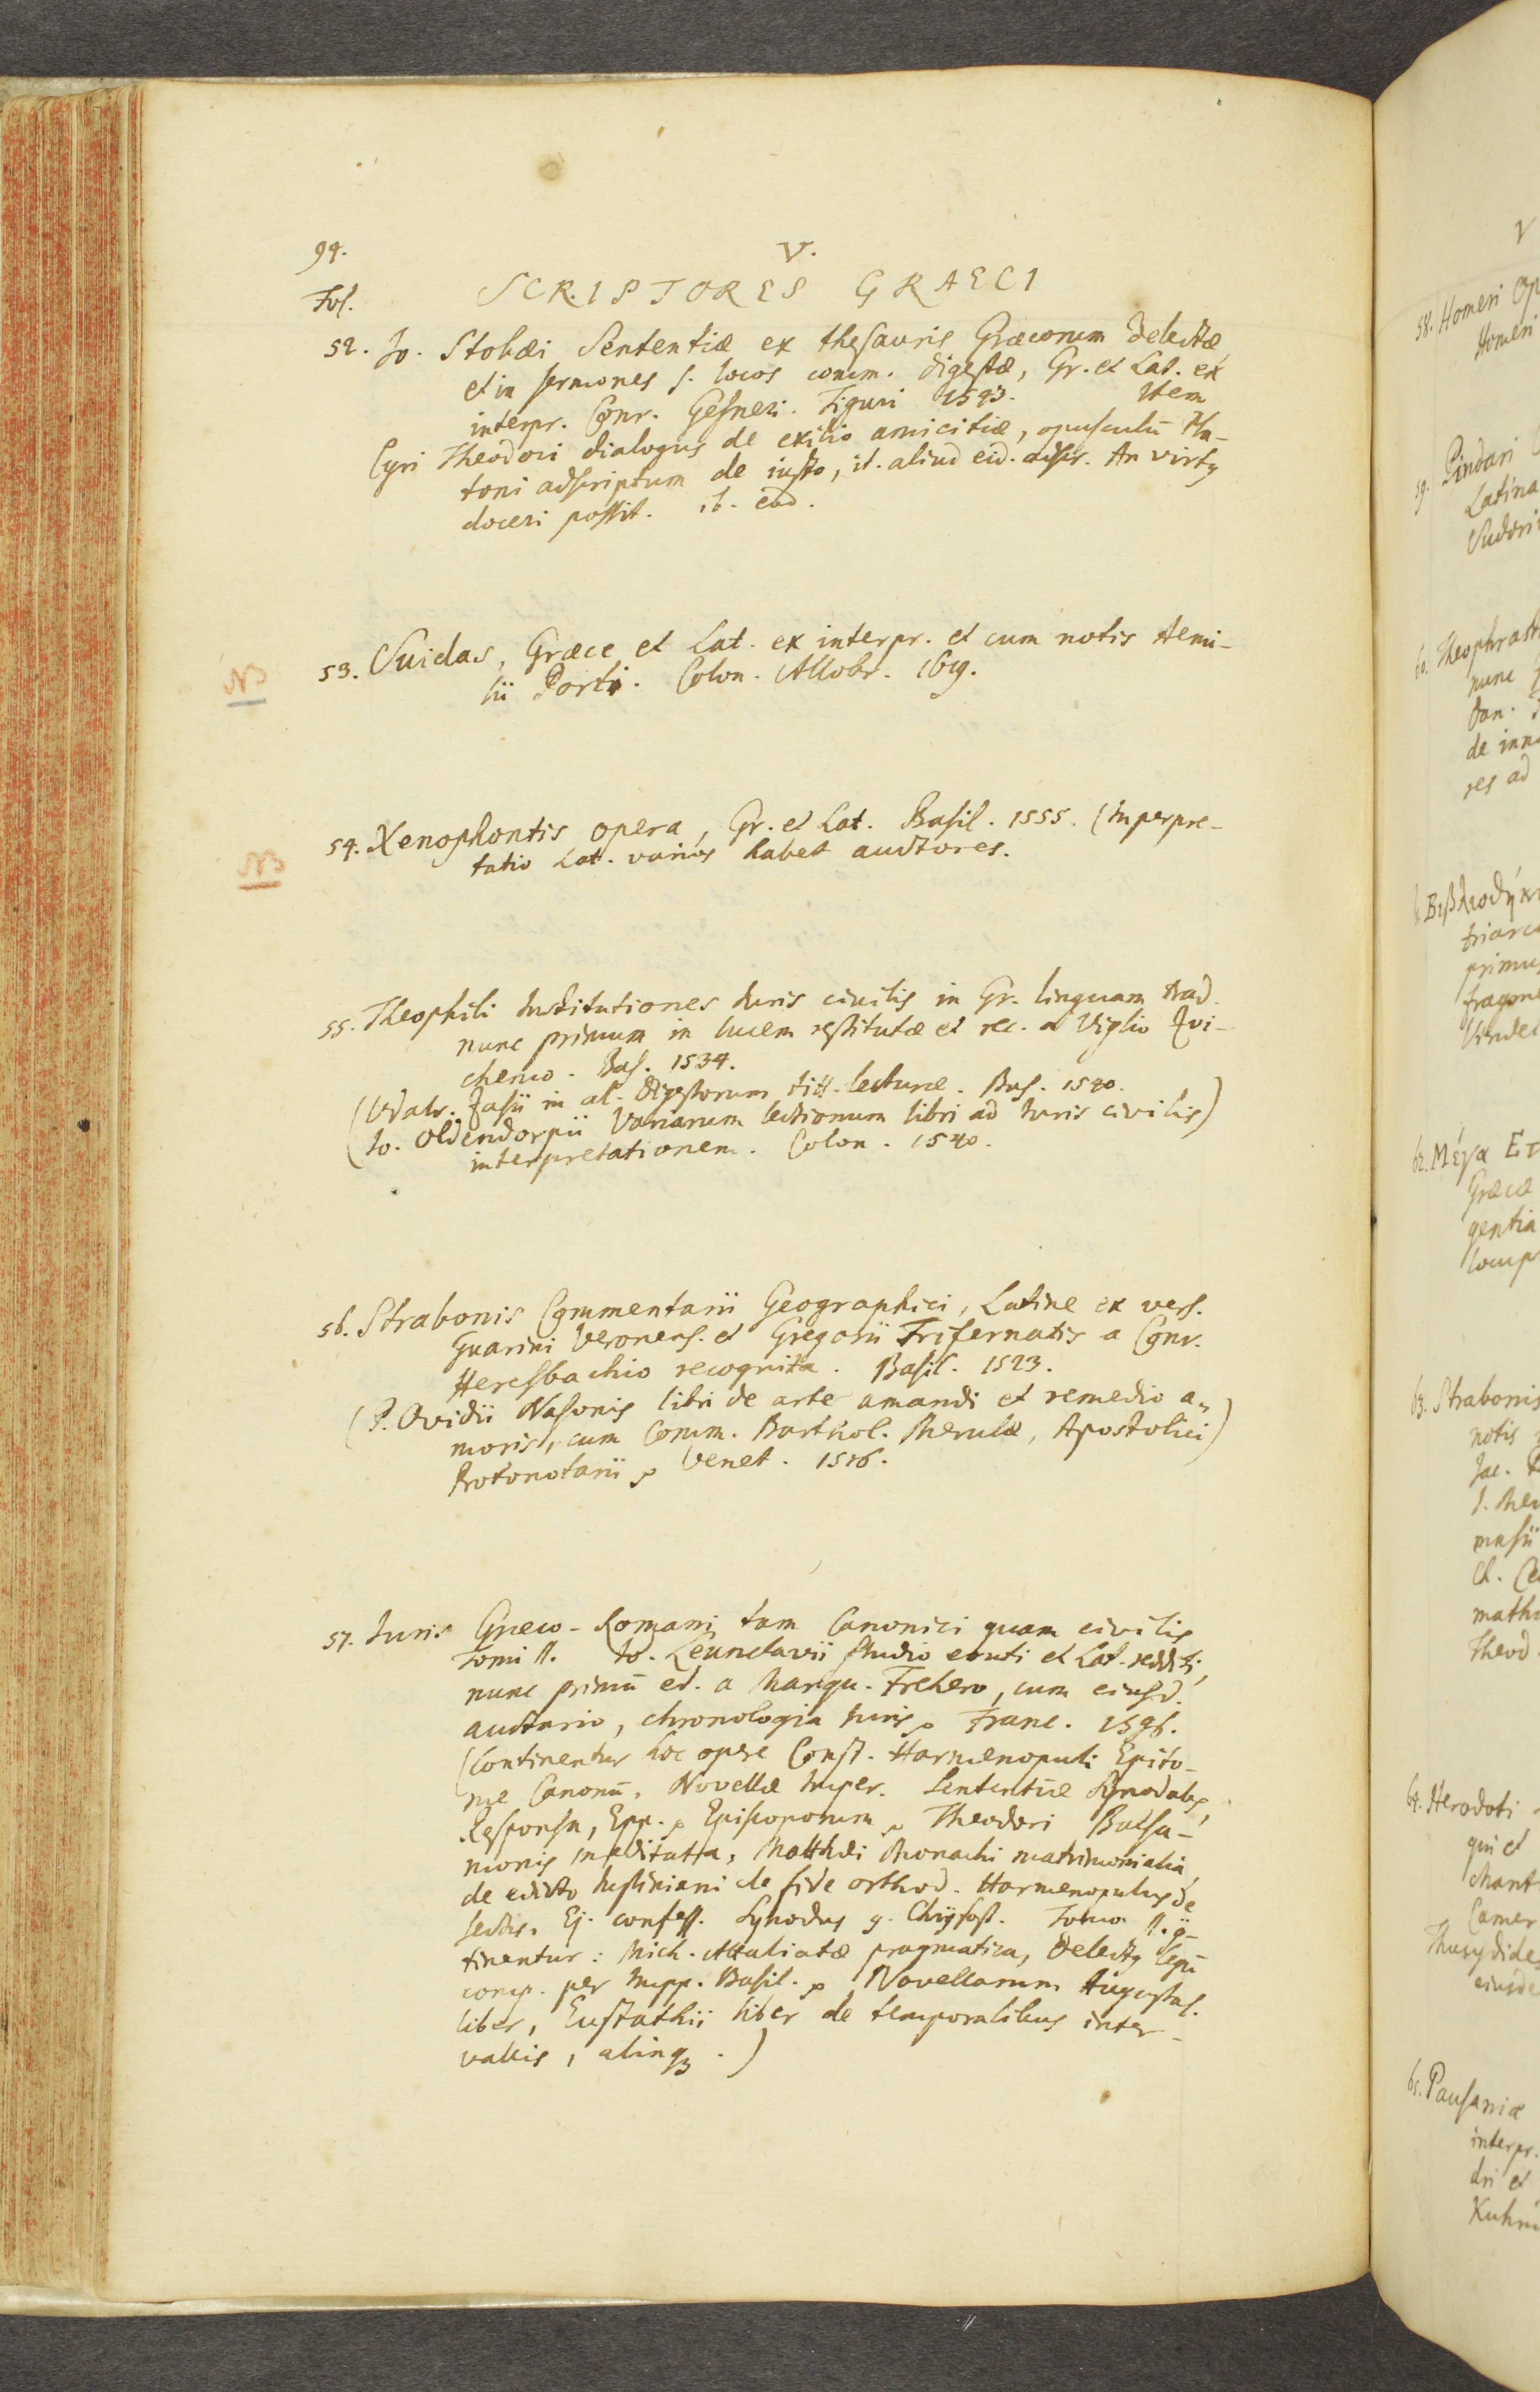 94.
V.
Fol.
SCRIPTORES GRAECI
52. Jo. Stobæi Sententiæ ex thesauris Græcorum delectæ
et in sermones s. locos comm. digestæ, Gr. et Lat. ex
interpr. Conr. Gesneri. Tiguri 1543. Item
Cyri Theodori dialogus de exilio amicitiæ, opusculū Pla-
toni adscriptum de iusto, it. aliud eid. adscr. An virtus
doceri possit. ib. eod.
NB
53. Suidas, Græce et Lat. ex interpr. et cum notis Aemi-
lii Porti. Colon. Allobr. 1619.
NB
54. Xenophontis opera, Gr. et Lat. Basil. 1555. (Interpre-
tatio Lat. varios habet auctores.
55. Theophili Institutiones Iuris civilis in Gr. linguam trad.
nunc primum in lucem restitutæ et rec. a Viglio Zvi-
chemo. Bas. 1534.
(Udalr. Zasii in al. Digestorum titt. lecturæ. Bas. 1540.
Io. Oldendorpii Variarum lectionum libri ad Iuris civilis)
interpretationem. Colon. 1540.
56. Strabonis Commentarii Geographici, Latine ex vers.
Guarini Veronens. et Gregorii Trifernatis a Conr.
Heresbachio recognita. Basil. 1523.
(P. Ovidii Nasonis libri de arte amandi et remedio a-
moris, cum Comm. Barthol. Merulæ, Apostolici)
Protonotarii Venet. 1516.
57. Iuris Græco-Romani tam Canonici quam civilis
Tomi II. Io. Leunclavii studio eruti et Lat. redditi,
nunc primū ed. a Marqu. Frehero, cum eiusd.
auctario, chronologia Iuris Franc. 1596.
(Continentur hoc opere Const. Harmenopuli Epito-
me Canonū, Novellæ Imper. Sententiæ Synodales
Responsa, Epp. Episcoporum Theodori Balsa-
monis meditata, Matthæi Monachi matrimonialia,
de edicto Iustiniani de fide orthod. Harmenopulus de
sectis, Ej. confess. Synodus g. Chrysost. Tomo II.
tinentur: Mich. Attaliatæ pragmatica, Delectus legū
comp. per Impp. Basil. Novellarum August.
liber, Eustathii liber de temporalibus inter-
vallis, aliaq3.)
V
58. Homeri Op
Homeri
59. Pindari
Latina
Sudori
60. Theophrasti
nunc
Dan.
de inn
res ad
Βιβλιοθήκη
triarc
primus
fragme
Vindel
62. Μέγα Ετ
Græcæ
gentia
comp
63. Strabonis
notis
Jac.
masii
Ch. Ce
math
Theod.
64. Herodoti
qui et
chant
Camer
Thucydides
eiusde
65. Pausaniæ
interpr.
dri et
Kuhni